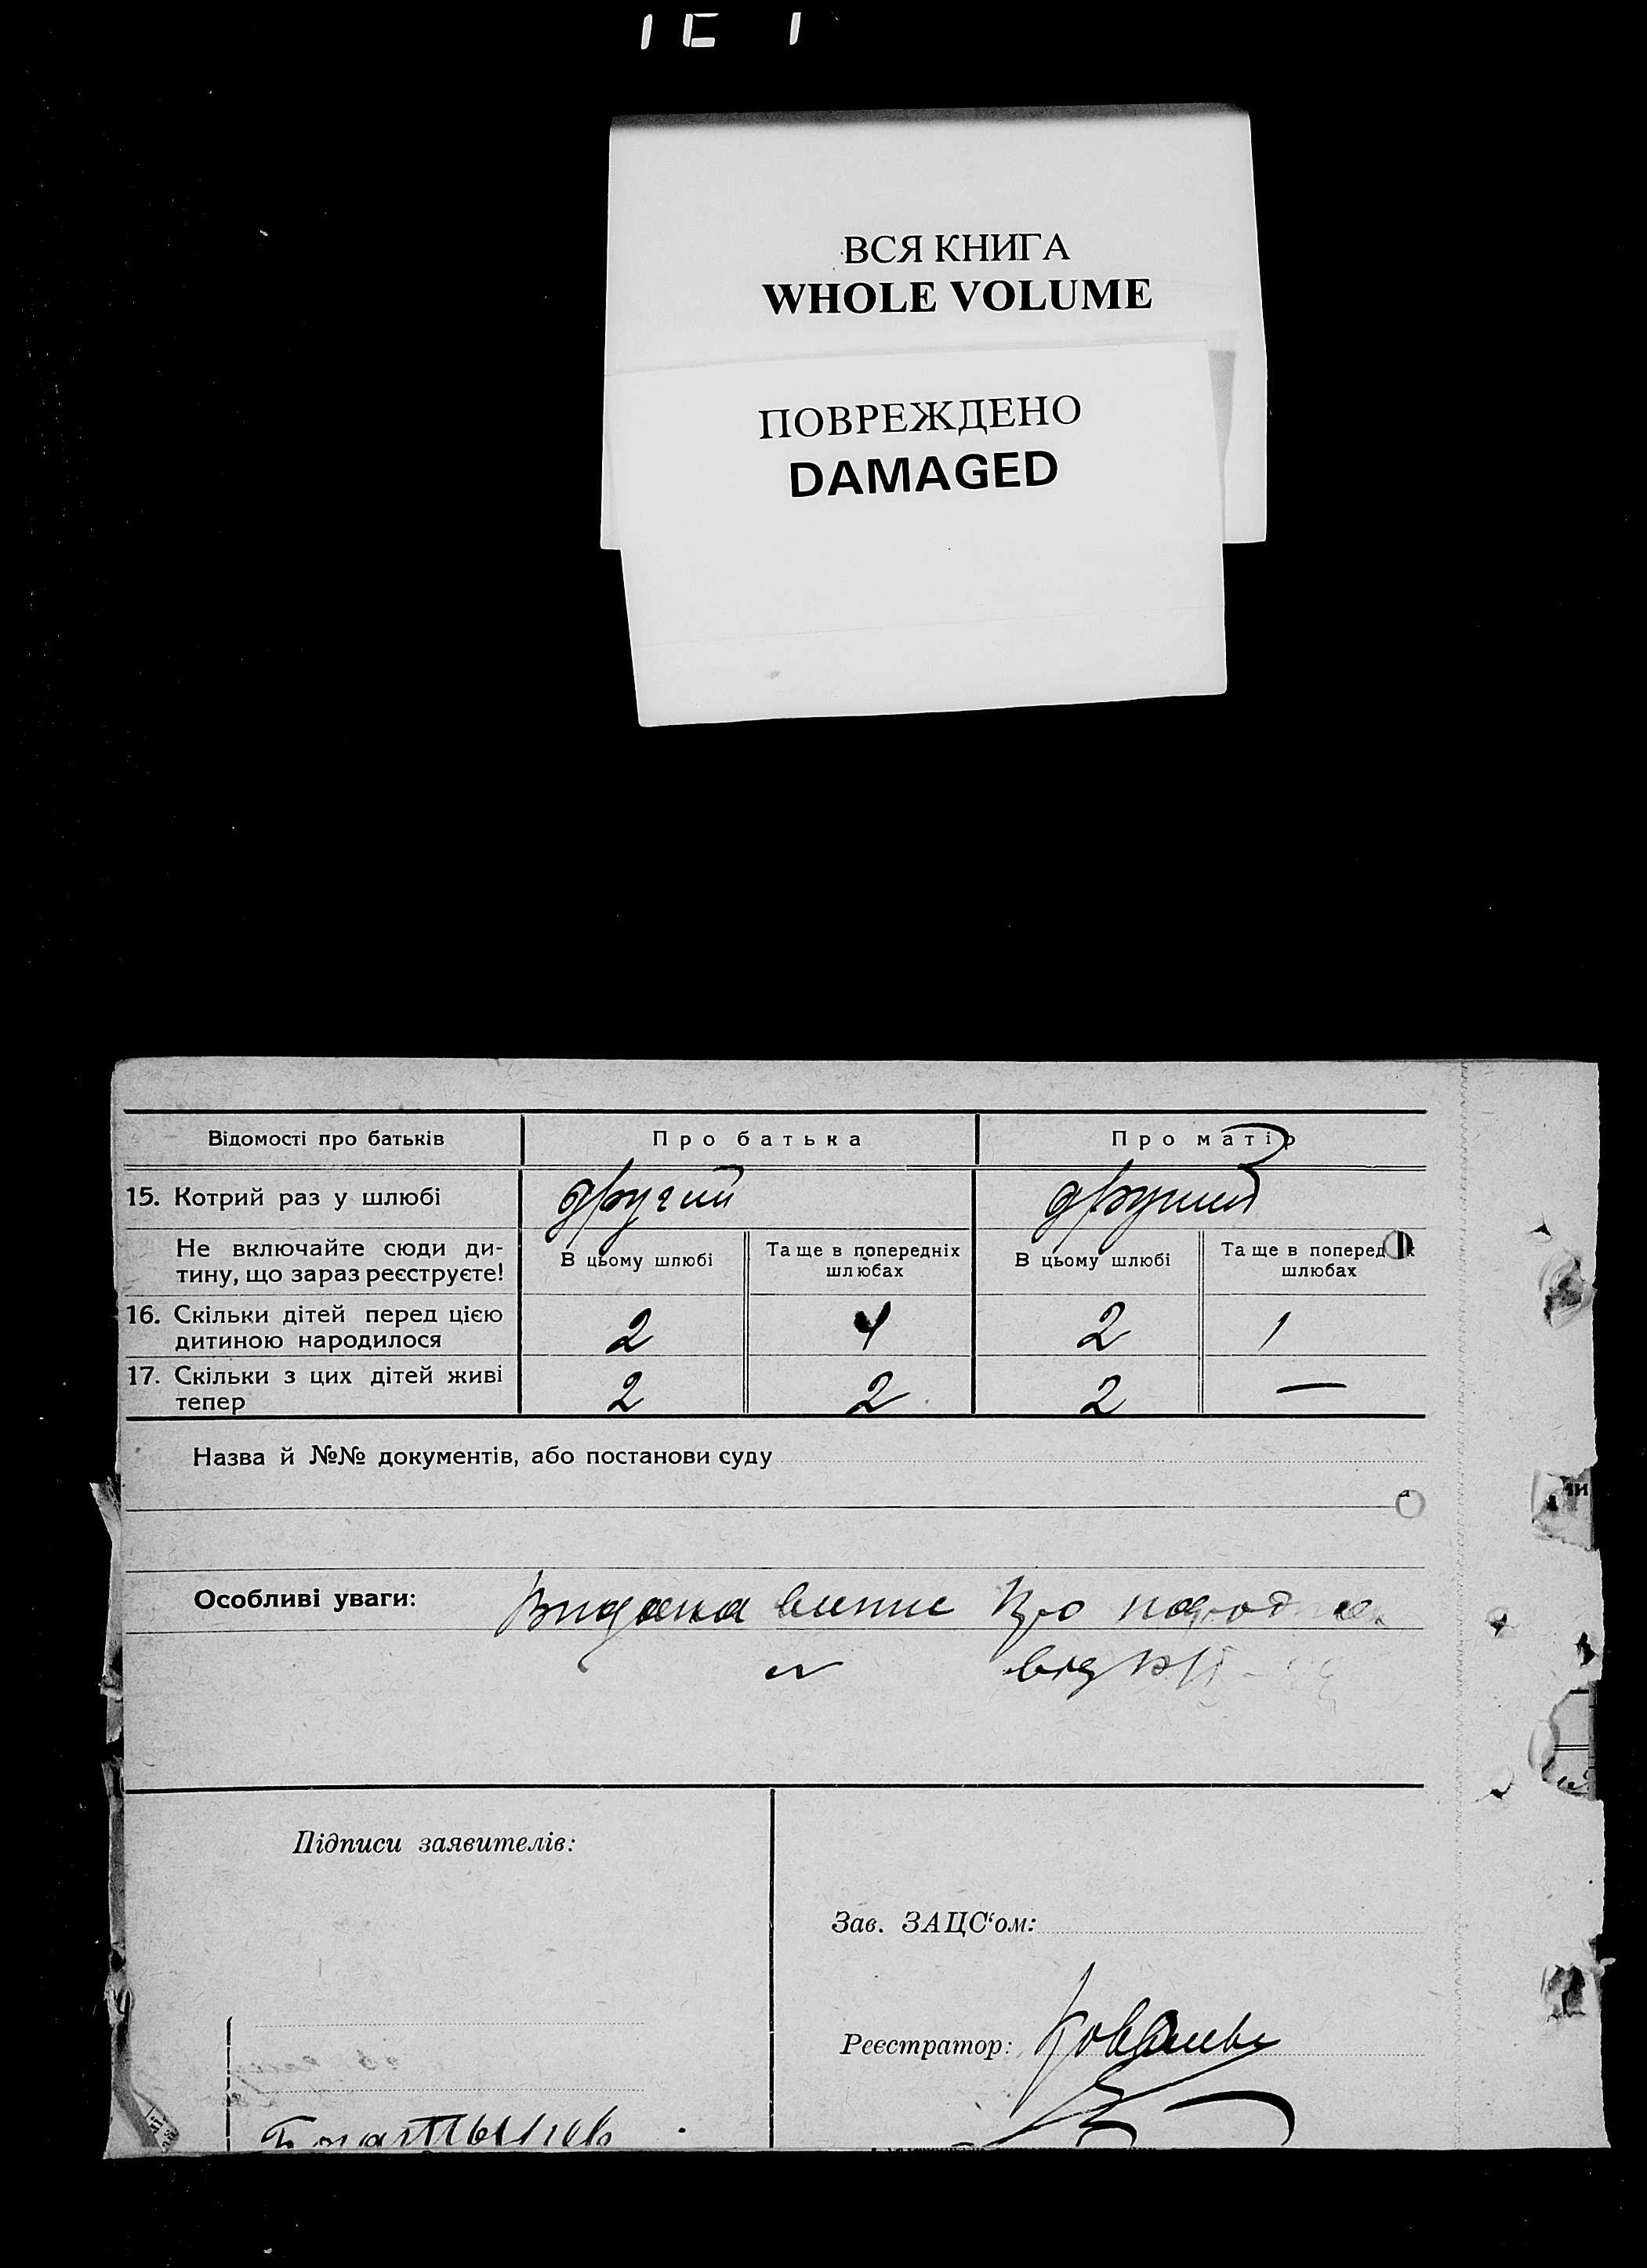 ВСЯ КНИГА
WHOLE VOLUME
ПОВРЕЖДЕНО
DAMAGED
Відомості про батьків Про батька Про матір
15. Котрий раз у шлюбі другий другий
Не включайте сюди ди-
тину, що зараз реєструєте!
В цьому шлюбі
Та ще в попередніх
шлюбах
В цьому шлюбі
Та ще в поперед
шлюбах
16. Скільки дітей перед цією
дитиною народилося
2 4 2 1
17. Скільки з цих дітей живі
тепер
2 2 2 —
Назва й №№ документів, або постанови суду
Особливі уваги: Видана випис про
від
Підписи заявителів:
Зав. ЗАЦС‘ом:
Реєстратор: